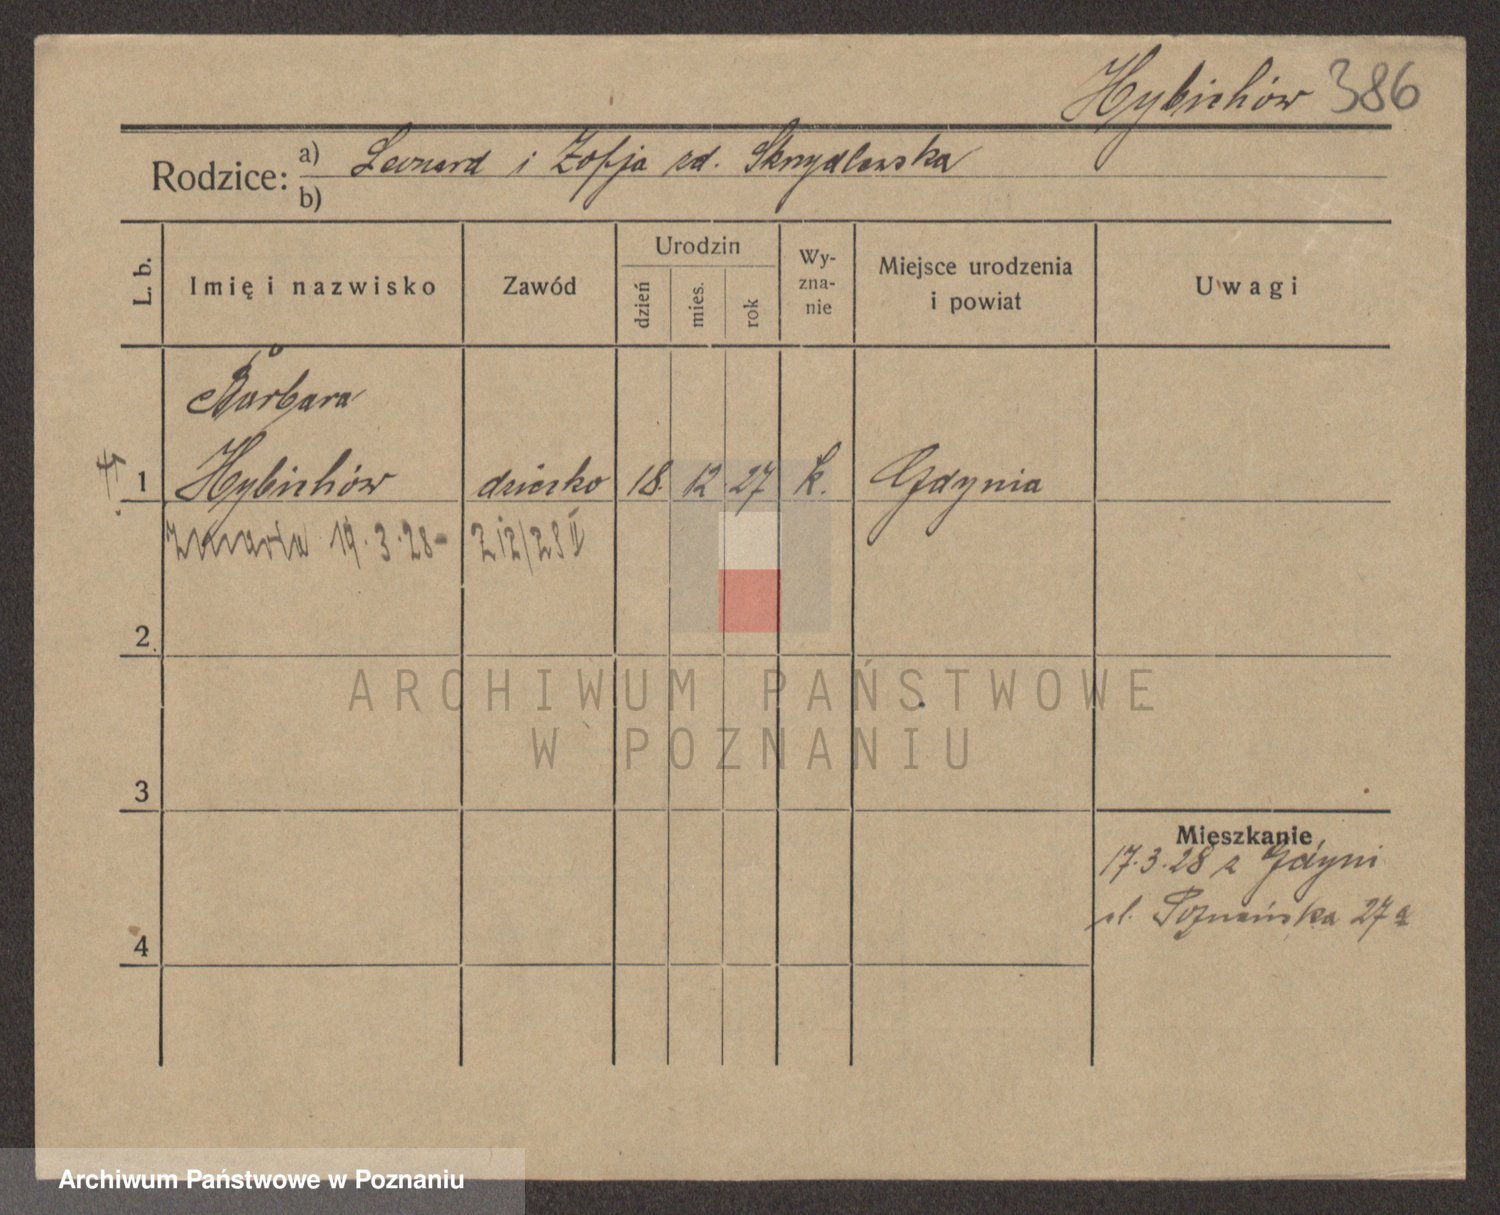 Hybichów 386
Rodzice: a) Leonard i Zofja zd. Skrzydlewska
b)
L. b.
Imię i nazwisko
Zawód
Urodzin
dzień
mies.
rok
Wy-
zna-
nie
Miejsce urodzenia
i powiat
Uwagi
Barbara
1 Hybichów dziecko 18. 12 27 k. Gdynia
zmarła 19.3.28- 212/28 II
2
3
4
Mieszkanie
17.3.28 z Gdyni
ul. Poznańska 27a
ARCHIWUM PAŃSTWOWE
W POZNANIU
Archiwum Państwowe w Poznaniu